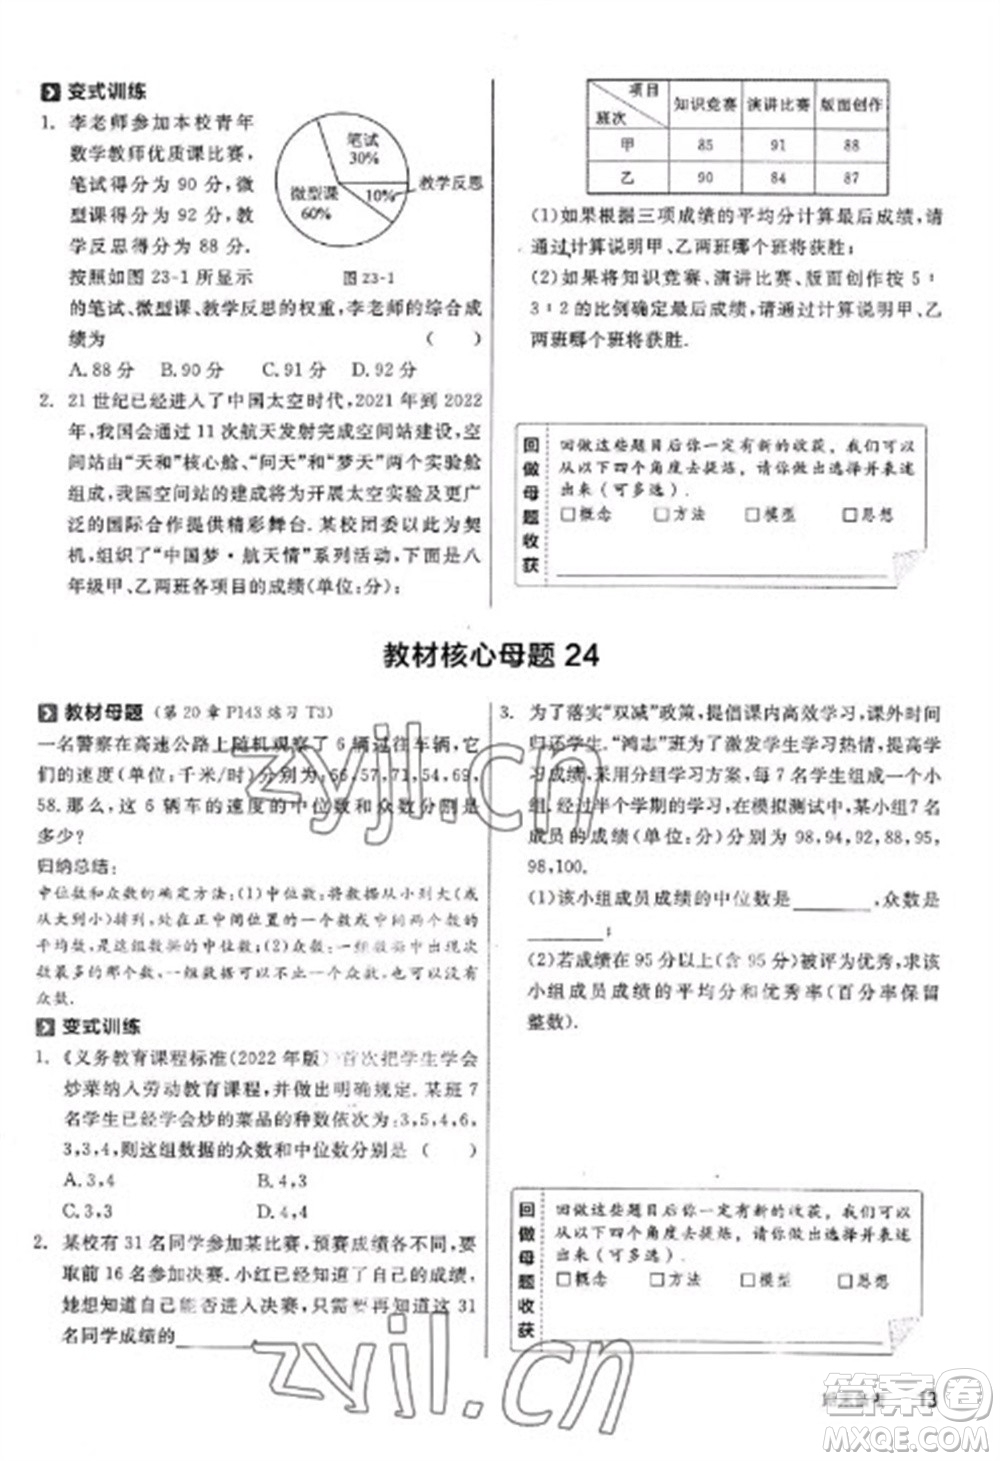 变式训练
1. 李老师参加本校青年
数学教师优质课比赛,
笔试得分为 90 分,微
型课得分为 92 分,教
学反思得分为 88 分.
按照如图 23-1 所显示
的笔试、微型课、教学反思的权重,李老师的综合成
绩为 ( )
A.88 分 B.90 分 C.91 分 D.92 分
笔试
30%
微型课
60%
10%
教学反思
图 23-1
2. 21 世纪已经进入了中国太空时代,2021 年到 2022
年,我国会通过 11 次航天发射完成空间站建设,空
间站由“天和”核心舱、“问天”和“梦天”两个实验舱
组成,我国空间站的建成将为开展太空实验及更广
泛的国际合作提供精彩舞台.某校团委以此为契
机,组织了“中国梦·航天情”系列活动,下面是八
年级甲、乙两班各项目的成绩(单位:分):
项目
班次 知识竞赛 演讲比赛 版面创作
甲 85 91 88
乙 90 84 87
(1)如果根据三项成绩的平均分计算最后成绩,请
通过计算说明甲、乙两班哪个班将获胜;
(2)如果将知识竞赛、演讲比赛、版面创作按 5∶
3∶2 的比例确定最后成绩,请通过计算说明甲、乙
两班哪个班将获胜.
回做母题收获
回做这些题目后你一定有新的收获,我们可以
从以下四个角度去提炼,请你进行选择并表述
出来(可多选).
□概念 □方法 □模型 □思想
教材核心母题 24
教材母题 (第 20 章 P143 练习 T3)
一名警察在高速公路上随机观察了 6 辆过往车辆,它
们的速度(单位:千米/时)分别为:66,57,71,54,69,
58.那么,这 6 辆车的速度的中位数和众数分别是
多少?
归纳总结:
中位数和众数的确定方法:(1)中位数:将数据从小到大(或
从大到小)排列,处在正中间位置的一个数或两个数的
平均数,是这组数据的中位数;(2)众数:一组数据中出现次
数最多的数据可以不止一个,也可以没有
众数.
变式训练
1. 《义务教育课程标准(2022 年版)》首次把学生学会
炒菜纳入劳动教育课程,并做出明确规定.某班 7
名学生已经学会炒的菜品的种数依次为:3,5,4,6,
3,3,4,则这组数据的众数和中位数分别是 ( )
A.3,4 B.4,3
C.3,3 D.4,4
2. 某校有 31 名同学参加某比赛,预赛成绩各不同,要
取前 16 名参加决赛.小红已经知道了自己的成绩,
她想知道自己能否进入决赛,只需要再知道这 31
名同学成绩的
3. 为了落实“双减”政策,提倡课内高效学习,课外时间
归还学生.“鸿志”班为了激发学生学习热情,提高学
习成绩,采用分组学习方案,每 7 名学生组成一个小
组.经过半个学期的学习,在模拟测试中,某小组 7 名
成员的成绩(单位:分)分别为 98,94,92,88,95,
98,100.
(1)该小组成员成绩的中位数是 ,众数是
;
(2)若成绩在 95 分以上(含 95 分)被评为优秀,求该
小组成员成绩的平均分和优秀率(百分率保留
整数).
回做母题收获
回做这些题目后你一定有新的收获,我们可以
从以下四个角度去提炼,请你进行选择并表述
出来(可多选).
□概念 □方法 □模型 □思想
13
zyjl.cn
zyjl.cn
答案圈
MXQE.COM